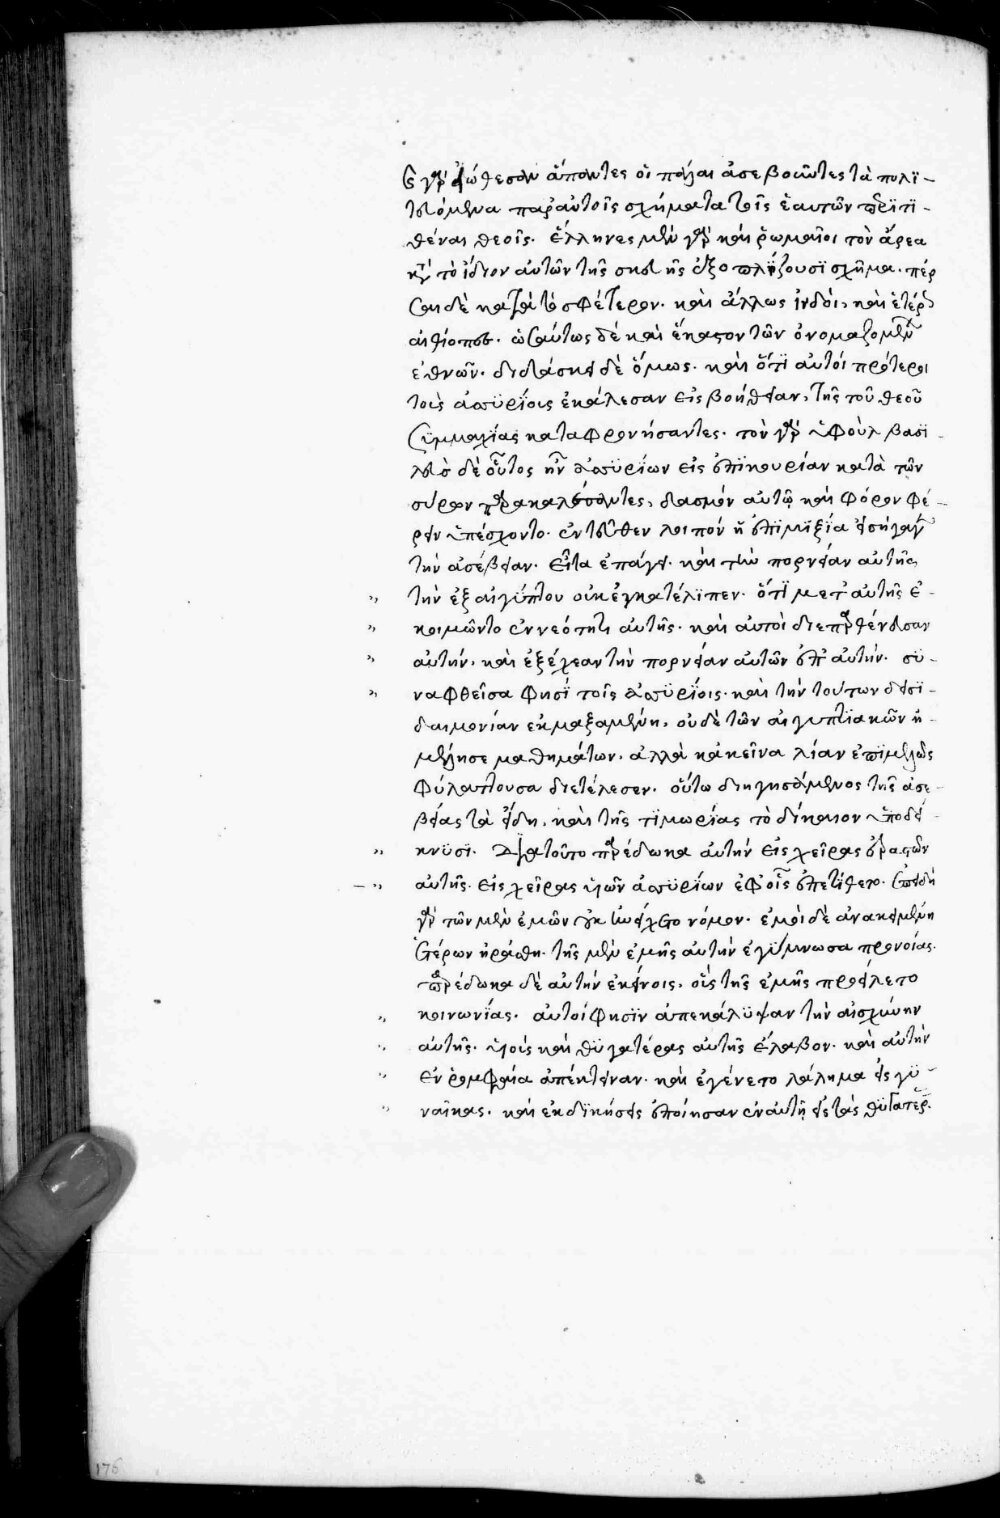 καὶ γὰρ εἰώθεσαν ἅπαντες οἱ πάλαι ἀσεβοῦντες τὰ πολϊ-
τευόμενα παρ' αὐτοῖς σχήματα τοῖς ἑαυτῶν περϊτϊ-
θέναι θεοῖς. ἕλληνες μὲν γὰρ καὶ ῥωμαῖοι τὸν ἄρεα
κατὰ τὸ ἴδιον αὐτῶν τῆς σκευῆς ἐξοπλίζουσϊ σχῆμα. πέρ
σαι δὲ κατὰ τὸ σφέτερον. καὶ ἄλλως ἰνδοὶ, καὶ ἑτέρως
αἰθίοπες. ὡσαύτως δὲ καὶ ἕκαστον τῶν ὀνομαζομένων
ἐθνῶν. διδάσκει δὲ ὅμως. καὶ ὅτϊ αὐτοὶ πρότεροι
τοὺς ἀσσϋρίους ἐκάλεσαν εἰς βοήθειαν, τῆς τοῦ θεοῦ
συμμαχίας καταφρονήσαντες. τὸν γὰρ φοὺλ βασϊ-
λεὺς δὲ οὗτος ἦν ἀσσϋρίων εἰς ἐπϊκουρίαν κατὰ τῶν
σύρων παρακαλέσαντες, δασμὸν αὐτῷ καὶ φόρον φέ-
ρειν ὑπέσχοντο. ἐντεῦθεν λοιπὸν ἡ ἐπϊμϊξία εἰσήγαγε
τὴν ἀσέβειαν. εἶτα ἐπάγει. καὶ τὴν πορνείαν αὐτῆς
" τὴν ἐξ αἰγύπτου οὐκ ἐγκατέλϊπεν. ὅτϊ μετ' αὐτῆς ἐ-
" κοιμῶντο ἐν νεότητι αὐτῆς. καὶ αὐτοὶ διεπαρθένευσαν
" αὐτήν. καὶ ἐξέχεαν τὴν πορνείαν αὐτῶν ἐπ' αὐτήν. συ-
" ναφθεῖσα φησϊ τοῖς ἀσσϋρίοις. καὶ τὴν τούτων δεισϊ-
δαιμονίαν ἐκμαξαμένη, οὐδὲ τῶν αἰγυπτϊακῶν ἠ-
μέλησε μαθημάτων. ἀλλὰ κἀκεῖνα λίαν ἐπϊμελῶς
φύλαττουσα διετέλεσεν. οὕτω διηγησάμενος τῆς ἀσε-
βείας τὰ εἴδη, καὶ τῆς τϊμωρίας τὸ δίκαιον ὑποδεί-
" κνϋσϊ. διὰ τοῦτο παρέδωκα αὐτὴν εἰς χεῖρας ἐραστῶν
" αὐτῆς. εἰς χεῖρας υἱῶν ἀσσϋρίων ἐφ' οἷς ἐπετίθετο. ἐπειδὴ
γὰρ τῶν μὲν ἐμῶν οὐκ ἠνείχετο νόμων. ἐμοὶ δὲ ἀνακειμένη
ἑτέρων ἠράσθη. τῆς μὲν ἐμῆς αὐτὴν ἐγύμνωσα προνοίας.
παρέδωκα δὲ αὐτὴν ἐκείνοις, οἷς τῆς ἐμῆς προείλετο
" κοινωνίας. αὐτοὶ φησϊν ἀπεκάλυψαν τὴν αἰσχύνην
" αὐτῆς. υἱοὺς καὶ θϋγατέρας αὐτῆς ἔλαβον. καὶ αὐτὴν
" ἐν ῥομφαία ἀπέκτειναν. καὶ ἐγένετο λάλημα εἰς γϋ-
" ναῖκας. καὶ ἐκδϊκήσεις ἐποίησαν ἐν αὐτῇ εἰς τὰς θϋγατέρας.
176